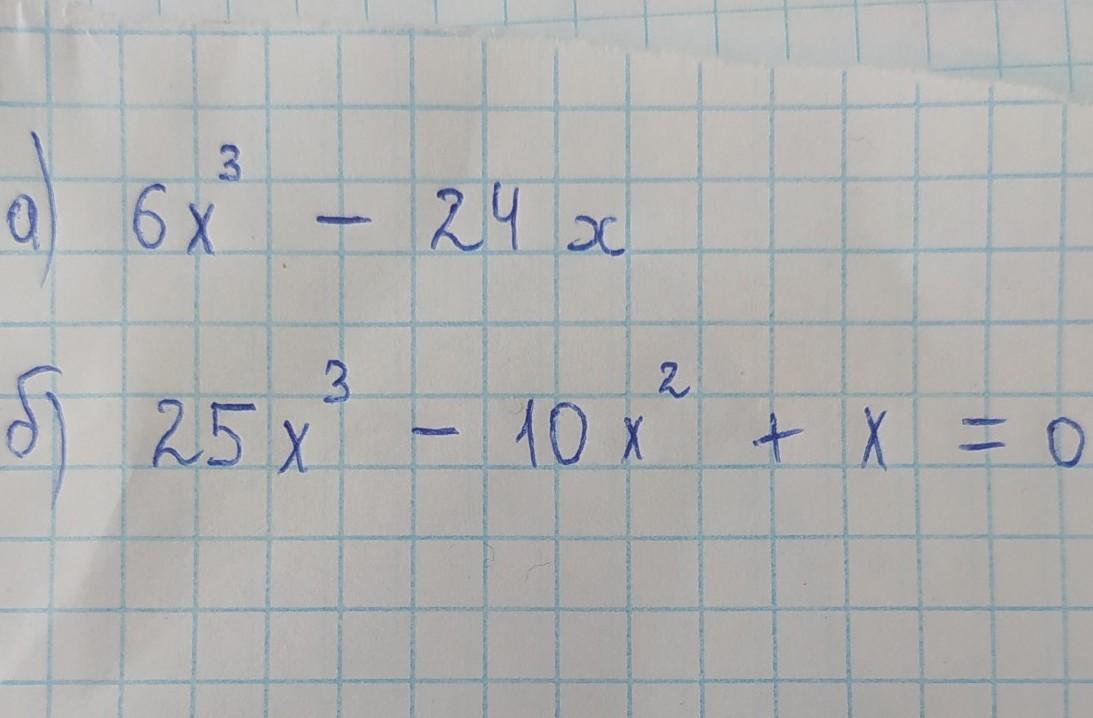 а) 6x³ - 24x
б) 25x³ - 10x² + x = 0